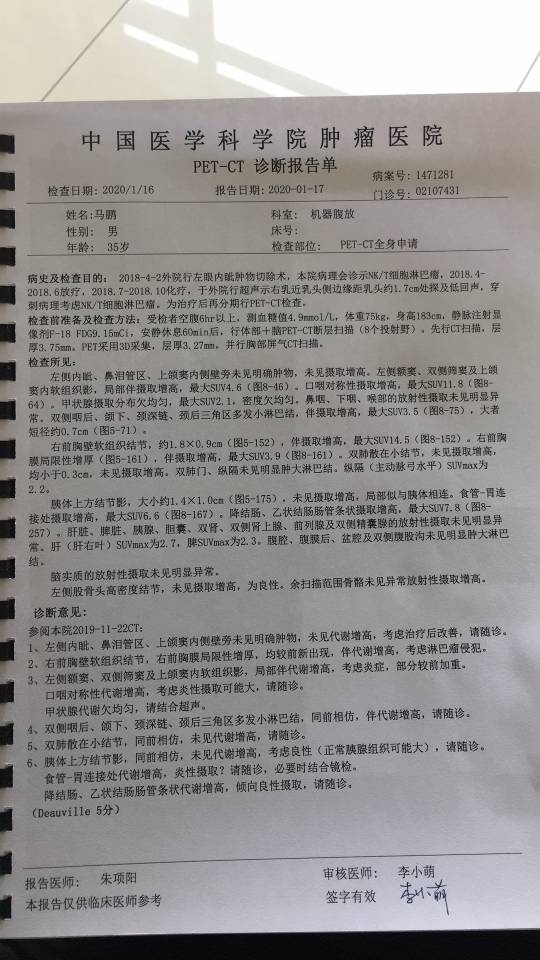 中国医学科学院肿瘤医院
PET-CT 诊断报告单
病案号: 1471281
检查日期: 2020/1/16 报告日期: 2020-01-17 门诊号: 02107431
姓名:马鹏 科室: 机器腹放
性别: 男 床号:
年龄: 35岁 检查部位: PET-CT全身申请
病史及检查目的: 2018-4-2外院行左眼内眦肿物切除术，本院病理会诊示NK/T细胞淋巴瘤，2018.4-
2018.6放疗，2018.7-2018.10化疗，于外院行超声示右乳近乳头侧边缘距乳头约1.7cm处探及低回声，穿
刺病理考虑NK/T细胞淋巴瘤。为治疗后再分期行PET-CT检查。
检查前准备及检查方法: 受检者空腹6hr以上，测血糖值4.9mmol/L，体重75kg，身高183cm，静脉注射显
像剂F-18 FDG9.15mCi，安静休息60min后，行体部＋脑PET-CT断层扫描（8个投射野）。先行CT扫描，层
厚3.75mm。PET采用3D采集，层厚3.27mm。并行胸部屏气CT扫描。
检查所见:
左侧内眦、鼻泪管区、上颌窦内侧壁旁未见明确肿物，未见摄取增高。左侧额窦、双侧筛窦及上颌
窦内软组织影，局部伴摄取增高，最大SUV4.6(图8-46)。口咽对称性摄取增高，最大SUV11.8(图8-
64)。甲状腺摄取分布欠均匀，最大SUV2.1，密度欠均匀。鼻咽、下咽、喉部的放射性摄取未见明显异
常。双侧咽后、颌下、颈深链、颈后三角区多发小淋巴结，伴摄取增高，最大SUV3.5（图8-75），大者
短径约0.7cm(图5-71)。
右前胸壁软组织结节，约1.8×0.9cm（图5-152），伴摄取增高，最大SUV14.5（图8-152）。右前胸
膜局限性增厚（图5-161），伴摄取增高，最大SUV3.9（图8-161）。双肺散在小结节，未见摄取增高，
均小于0.3cm，未见摄取增高。双肺门、纵隔未见明显肿大淋巴结。纵隔（主动脉弓水平）SUVmax为
2.2。
胰体上方结节影，大小约1.4×1.0cm（图5-175），未见摄取增高，局部似与胰体相连。食管-胃连
接处摄取增高，最大SUV6.6（图8-167）。降结肠、乙状结肠肠管条状摄取增高，最大SUV7.8（图8-
257）。肝脏、脾脏、胰腺、胆囊、双肾、双侧肾上腺、前列腺及双侧精囊腺的放射性摄取未见明显异
常。肝（肝右叶）SUVmax为2.7，脾SUVmax为2.3。腹腔、腹膜后、盆腔及双侧腹股沟未见明显肿大淋巴
结。
脑实质的放射性摄取未见明显异常。
左侧股骨头高密度结节，未见摄取增高，为良性。余扫描范围骨骼未见异常放射性摄取增高。
诊断意见:
参阅本院2019-11-22CT:
1、左侧内眦、鼻泪管区、上颌窦内侧壁旁未见明确肿物，未见代谢增高，考虑治疗后改善，请随诊。
2、右前胸壁软组织结节，右前胸膜局限性增厚，均较前新出现，伴代谢增高，考虑淋巴瘤侵犯。
3、左侧额窦、双侧筛窦及上颌窦内软组织影，局部伴代谢增高，考虑炎症，部分较前加重。
口咽对称性代谢增高，考虑炎性摄取可能大，请随诊。
甲状腺代谢欠均匀，请结合超声。
4、双侧咽后、颌下、颈深链、颈后三角区多发小淋巴结，同前相仿，伴代谢增高，请随诊。
5、双肺散在小结节，同前相仿，未见代谢增高，请随诊。
6、胰体上方结节影，同前相仿，未见代谢增高，考虑良性（正常胰腺组织可能大），请随诊。
食管-胃连接处代谢增高，炎性摄取？请随诊，必要时结合镜检。
降结肠、乙状结肠肠管条状代谢增高，倾向良性摄取，请随诊。
(Deauville 5分)
报告医师: 朱项阳 审核医师: 李小萌
本报告仅供临床医师参考 签字有效 李小萌